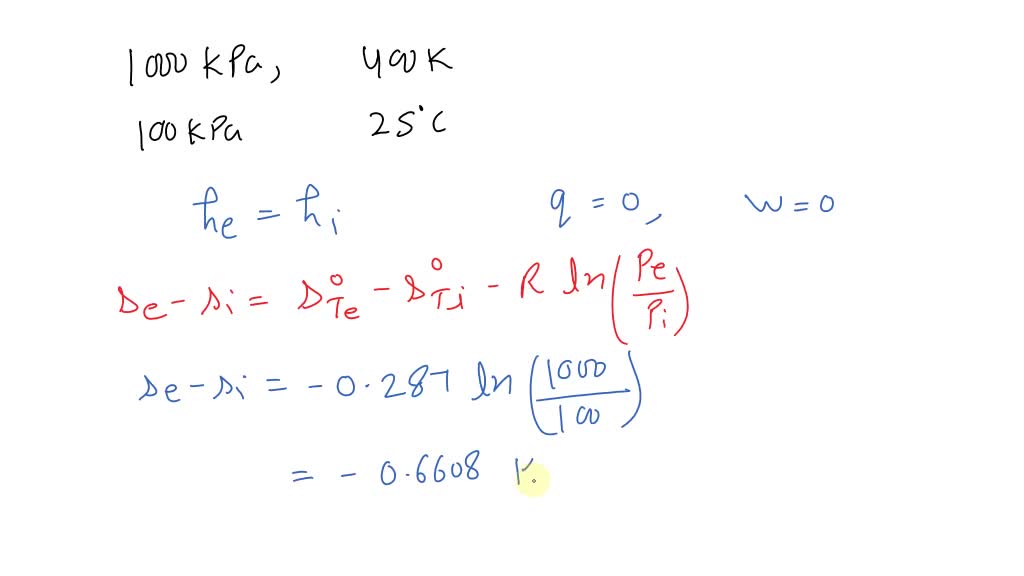 1000 kPa, 400K
100 kPa 25°C
he = hi q = 0, w = 0
se - si = s°Te - s°Ti - R ln(Pe/Pi)
se - si = -0.287 ln(1000/100)
= -0.6608 K